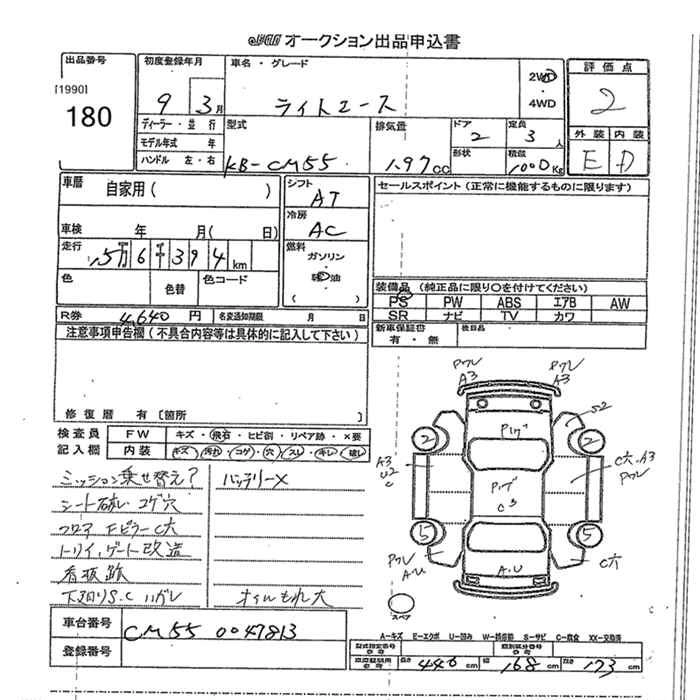 オークション出品申込書
出品番号
[1990]
180
初度登録年月
9 3月
車名・グレード
ライトエース
2WD
・
4WD
評価点
2
外装 内装
E D
ディーラー・並行
モデル年式 年
ハンドル 左・右
型式
KB-CM55
排気量
1.97cc
ドア
2
定員
3人
形状
積載
1000Kg
車歴 自家用( )
シフト
AT
セールスポイント(正常に機能するものに限ります)
車検 年 月( 日)
冷房
AC
走行
15万6千394km
燃料
ガソリン
軽油
( )
色 色替 色コード
装備品 (純正品に限り○を付けてください)
PS PW ABS エアB AW
SR ナビ TV カワ
R券 4,640円 名変通知期限 月 日
新車保証書
有・無
後日品
注意事項申告欄(不具合内容等は具体的に記入して下さい)
修復歴 有〔箇所 〕
検査員
記入欄
FW キズ・飛石・ヒビ割・リペア跡・×要
内装 キズ・汚れ・コゲ・穴・スレ・キレ・破レ
ミッション乗せ替え? バッテリーX
シート破レ コゲ穴
フロア Fピラー C大
トリイ、ゲート改造
看板跡
下廻りS.C ハガレ オイルもれ大
Pワレ
A3
Pワレ
A3
S2
2
2
A3
U2
C
C大.A3
Pワレ
C3
5
5
Pワレ
A.U
A.U
C大
スペア
車台番号 CM55 0047813
登録番号
A-キズ E-エクボ U-凹み W-補修跡 S-サビ C-腐食 XX-交換済
型式指定番号 類別区分番号
長さ 440cm 幅 168cm 高さ 173cm